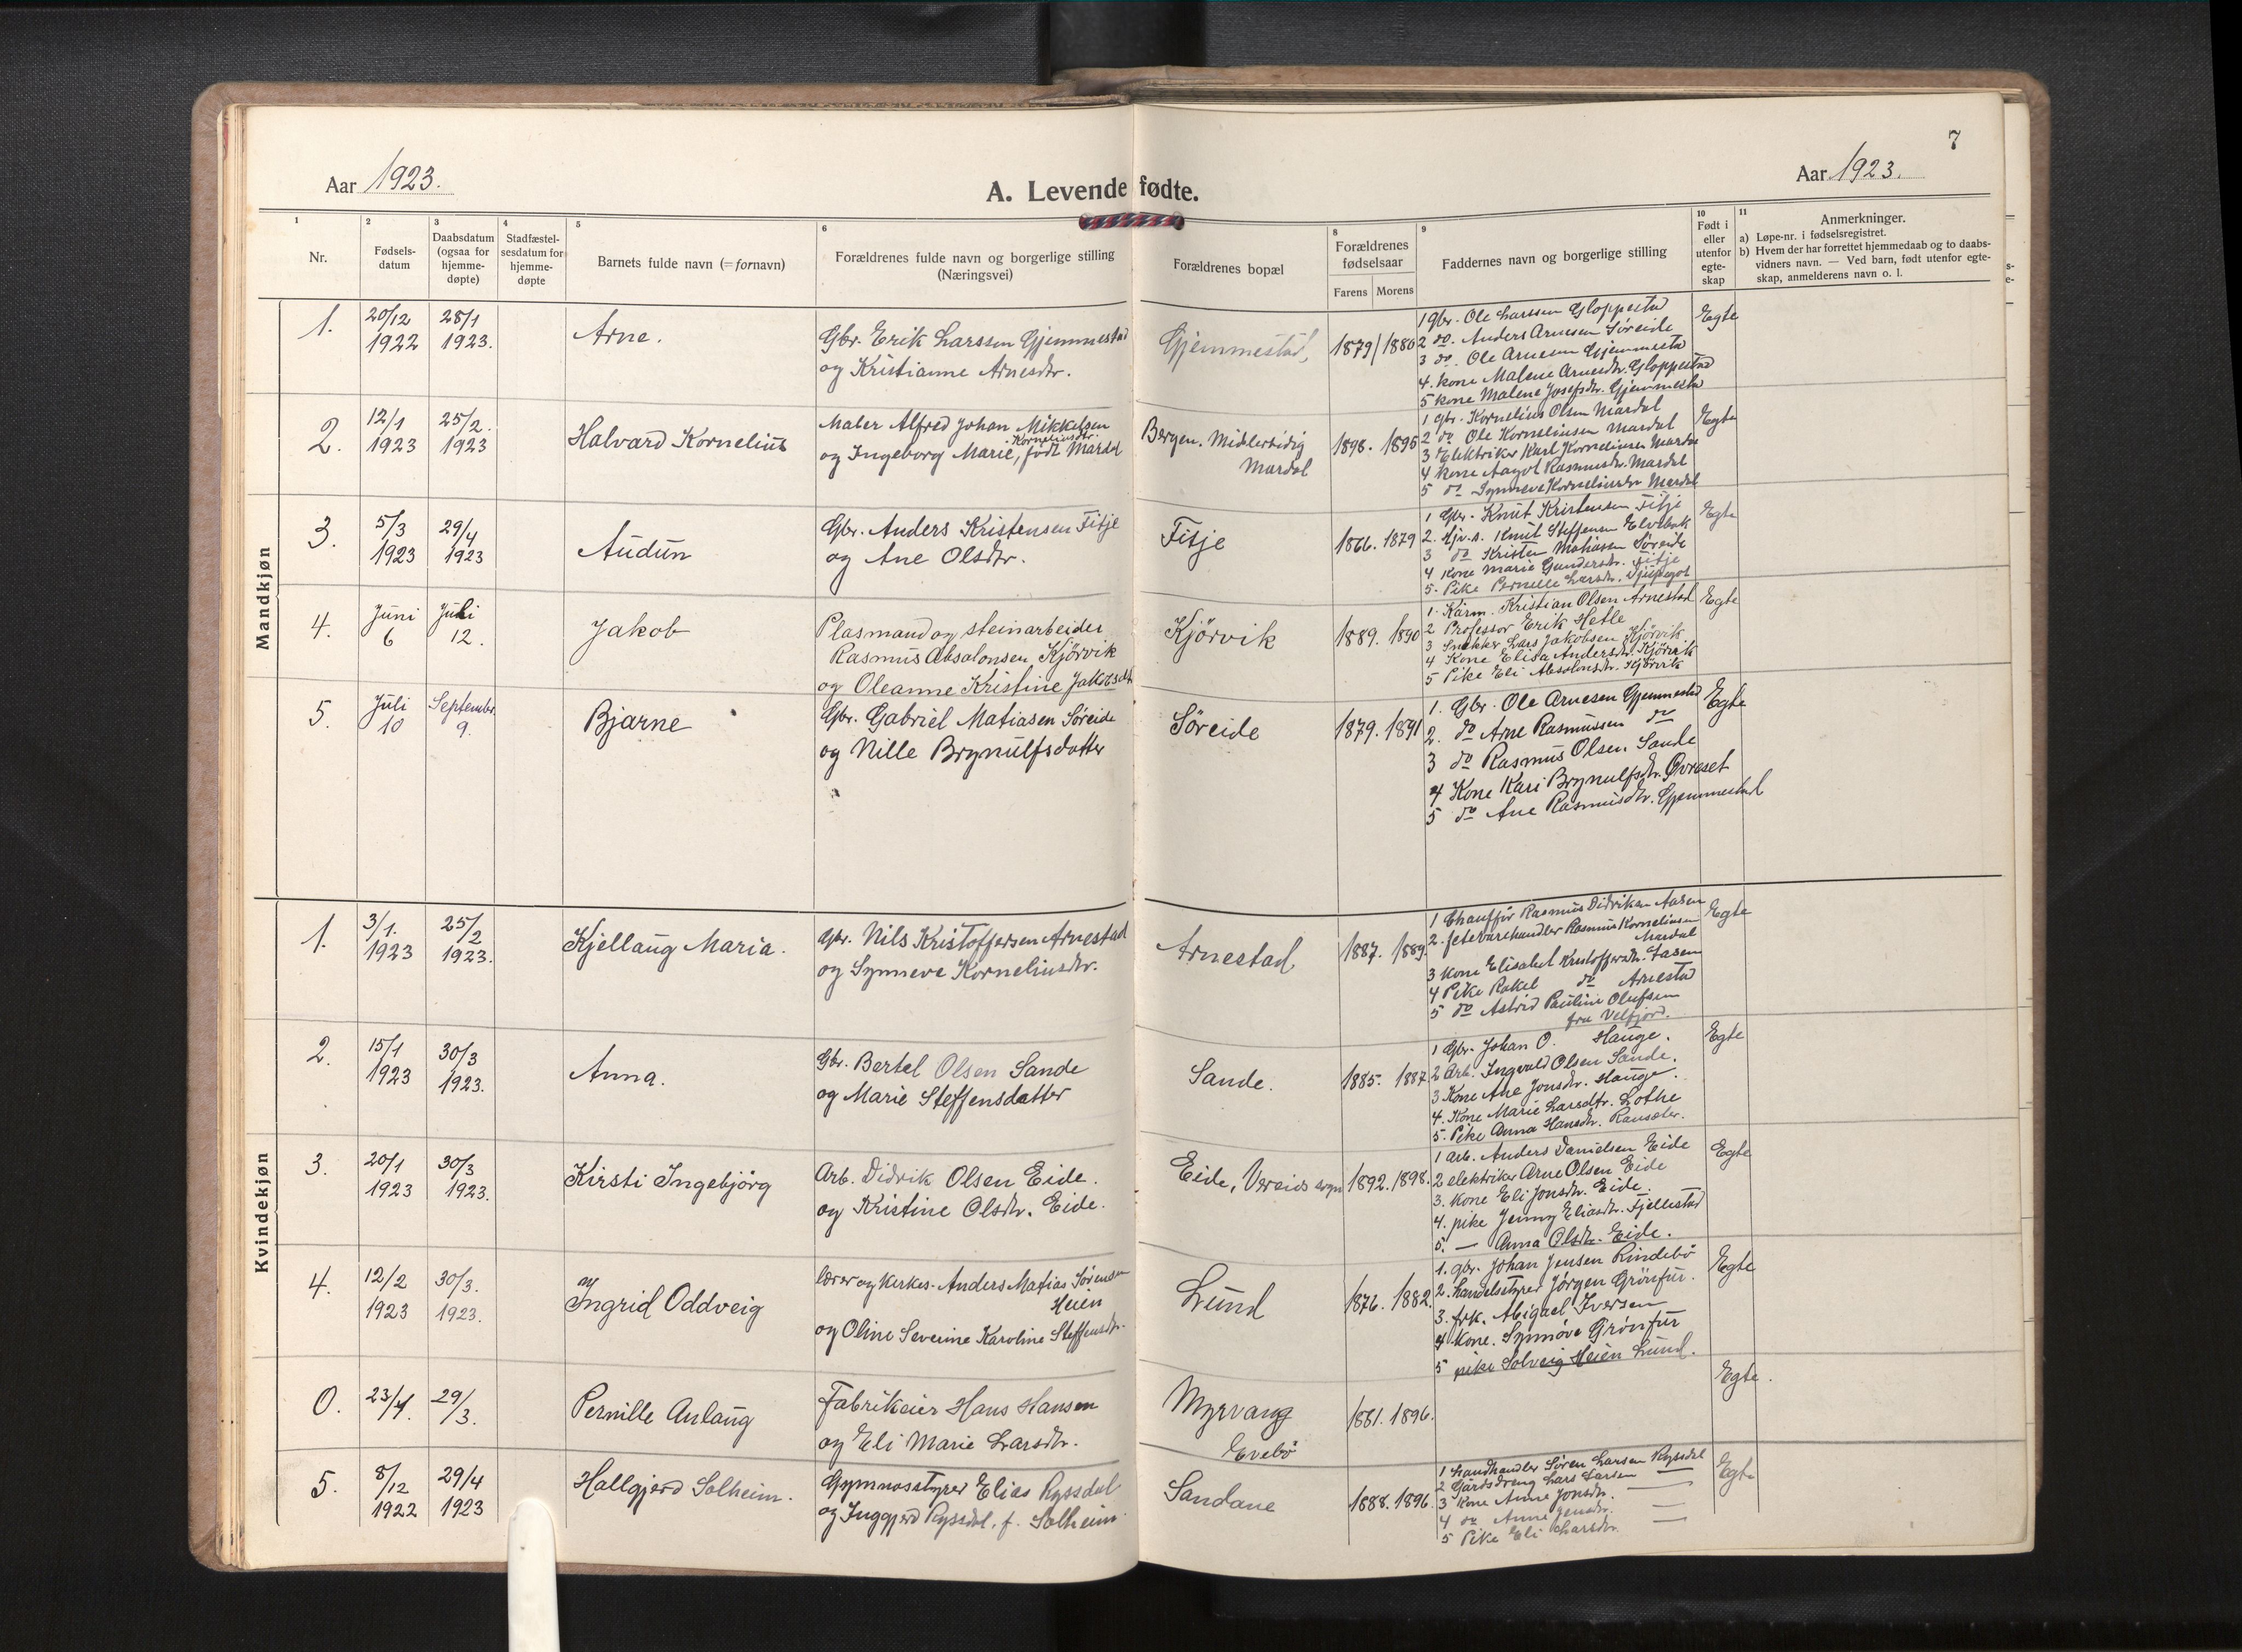 7
Aar 1923.
A. Levende fødte.
Aar 1923.
1
Nr.
2
Fødsels-
datum
3
Daabsdatum
(ogsaa for
hjemme-
døpte)
4
Stadfæstel-
sesdatum for
hjemme-
døpte
5
Barnets fulde navn (=fornavn)
6
Forældrenes fulde navn og borgerlige stilling
(Næringsvei)
Forældrenes bopæl
8
Forældrenes
fødselsaar
Farens Morens
9
Faddernes navn og borgerlige stilling
10
Født i
eller
utenfor
egte-
skap
11
Anmerkninger.
a) Løpe-nr. i fødselsregistret.
b) Hvem der har forrettet hjemmedaab og to daabs-
vidners navn. — Ved barn, født utenfor egte-
skap, anmelderens navn o. l.
Mandkjøn
1.
20/12
1922
28/1
1923.
Arne.
Gbr. Erik Larssen Gjemmestad
og Kristianne Arnesdtr.
Gjemmestad,
1879/1880
1 Gbr. Ole Larssen Gloppestad
2 do. Anders Arnesen Søreide
3 do. Ole Arnesen Gjemmestad
4. kone Malene Arnesdtr. Gloppestad
5 kone Malene Josefsdtr. Gjemmestad
Egte
2.
12/1
1923
25/2.
1923
Halvard Kornelius
Maler Alfred Johan Mikkelsen
og Ingeborg Marie, Korneliusdtr. født Mardal
Bergen. Midlertidig
Mardal
1898. 1895
1 gbr. Kornelius Olsen Mardal
2 do Ole Korneliusen Mardal
3 Elektriker Karl Korneliusen Mardal
4 kone Aagot Rasmusdtr. Mardal
5 do Synneve Korneliusdtr Mardal
Egte
3.
5/3
1923
29/4
1923
Audun
Gbr. Anders Kristensen Fitje
og Ane Olsdtr.
Fitje
1866. 1879
1 Gbr. Knut Kristensen Fitje
2. Knut Steffensen Elvebak
3 do Kristen Mathiasen Søreide
4 Kone Marie Gundersdtr. Fitje
5. Pike Pernelle Larsdtr.
Egte
4.
Juni
6
Juli
12.
Jakob
Plasmand og steinarbeider
Rasmus Absalonsen Kjørvik
og Oleanne Kristine Jakobsdtr
Kjørvik
1889. 1890
1. Kristian Olsen Arnestad
2 Professor Erik Hetle
3 Snekker Lars Jakobsen Kjørvik
4 Kone Elisa Andersdtr. Kjørvik
5 Pike Eli Absalonsdtr. Kjørvik
Egte
5.
Juli
10
September
9.
Bjarne
Gbr. Gabriel Matiasen Søreide
og Nille Brynulfsdatter
Søreide
1879. 1891
1. Gbr. Ole Arnesen Gjemmestad
2. do Arne Rasmussen do
3 do Rasmus Olsen Sande
4 Kone Kari Brynulfsdtr. Øvreset
5 do Ane Rasmusdtr. Gjemmestad
Egte
Kvindekjøn
1.
3/1.
1923
25/2
1923.
Kjellaug Maria.
Gbr. Nils Kristoffersen Arnestad
og Synneve Korneliusdtr.
Arnestad
1887. 1889.
1 Chauffør Rasmus Didriksen Aasen
2. fetevarehandler Rasmus Korneliusen
Mardal
3 kone Elisabet Kristoffersdtr. Aasen
4 Pike Rakel do Arnestad
5 do Astrid Pauline Olufsen
fra Velfjord.
Egte
2.
15/1
1923
30/3
1923.
Anna.
Gbr. Bertel Olsen Sande
og Marie Steffensdatter
Sande.
1885. 1887
1 Gbr. Johan O. Hauge.
2 Arb. Ingvald Olsen Sande.
3 Kone Ane Jonsdtr. Hauge.
4. Kone Marie Larsdtr. Lothe
5. Pike Anna Hansdtr.
Egte
3.
20/1
1923
30/3
1923.
Kirsti Ingebjörg
Arb. Didrik Olsen Eide.
og Kristine Olsdtr. Eide.
Eide, Vereids sogn
1892. 1898.
1 arb. Anders Danielsen Eide
2 elektriker Arne Olsen Eide
3. kone Eli Jonsdtr. Eide.
4. pike Jenny Eliasdtr. Fjellestad
5. — Anna Olsdtr. Eide.
Egte
4.
12/2
1923
30/3.
1923.
Ingrid Oddveig
lærer og kirkes. Anders Matias Sørensen
Heien
og Oline Severine Karoline Steffensdtr.
Lund
1876. 1882.
1. gbr. Johan Jensen Rindebö
2. Handelsstyrer Jörgen Grönfur.
3. frk. Abigael Iversen
4 kone. Synnöve Grönfur
5 pike Solveig Heien Lund.
Egte
0.
23/4.
29/3.
Pernille Aslaug
Fabrikeier Hans Hansen
og Eli Marie Larsdtr.
Myrvang
Evebö
1881. 1896.
Egte.
5.
8/12
1922
29/4
1923
Hallgjerd Solheim.
Gymnasstyrer Elias Ryssdal
og Inggjerd Ryssdal, f. Solheim
Sandane
1888. 1896.
1 Landhandler Søren Larsen Ryssdal
2 Gårdsdreng Lars Larsen —
3 kone Anne Jonsdtr. —
4 do Anne Jensdtr. —
5 Pike Eli Larsdtr. —
Egte